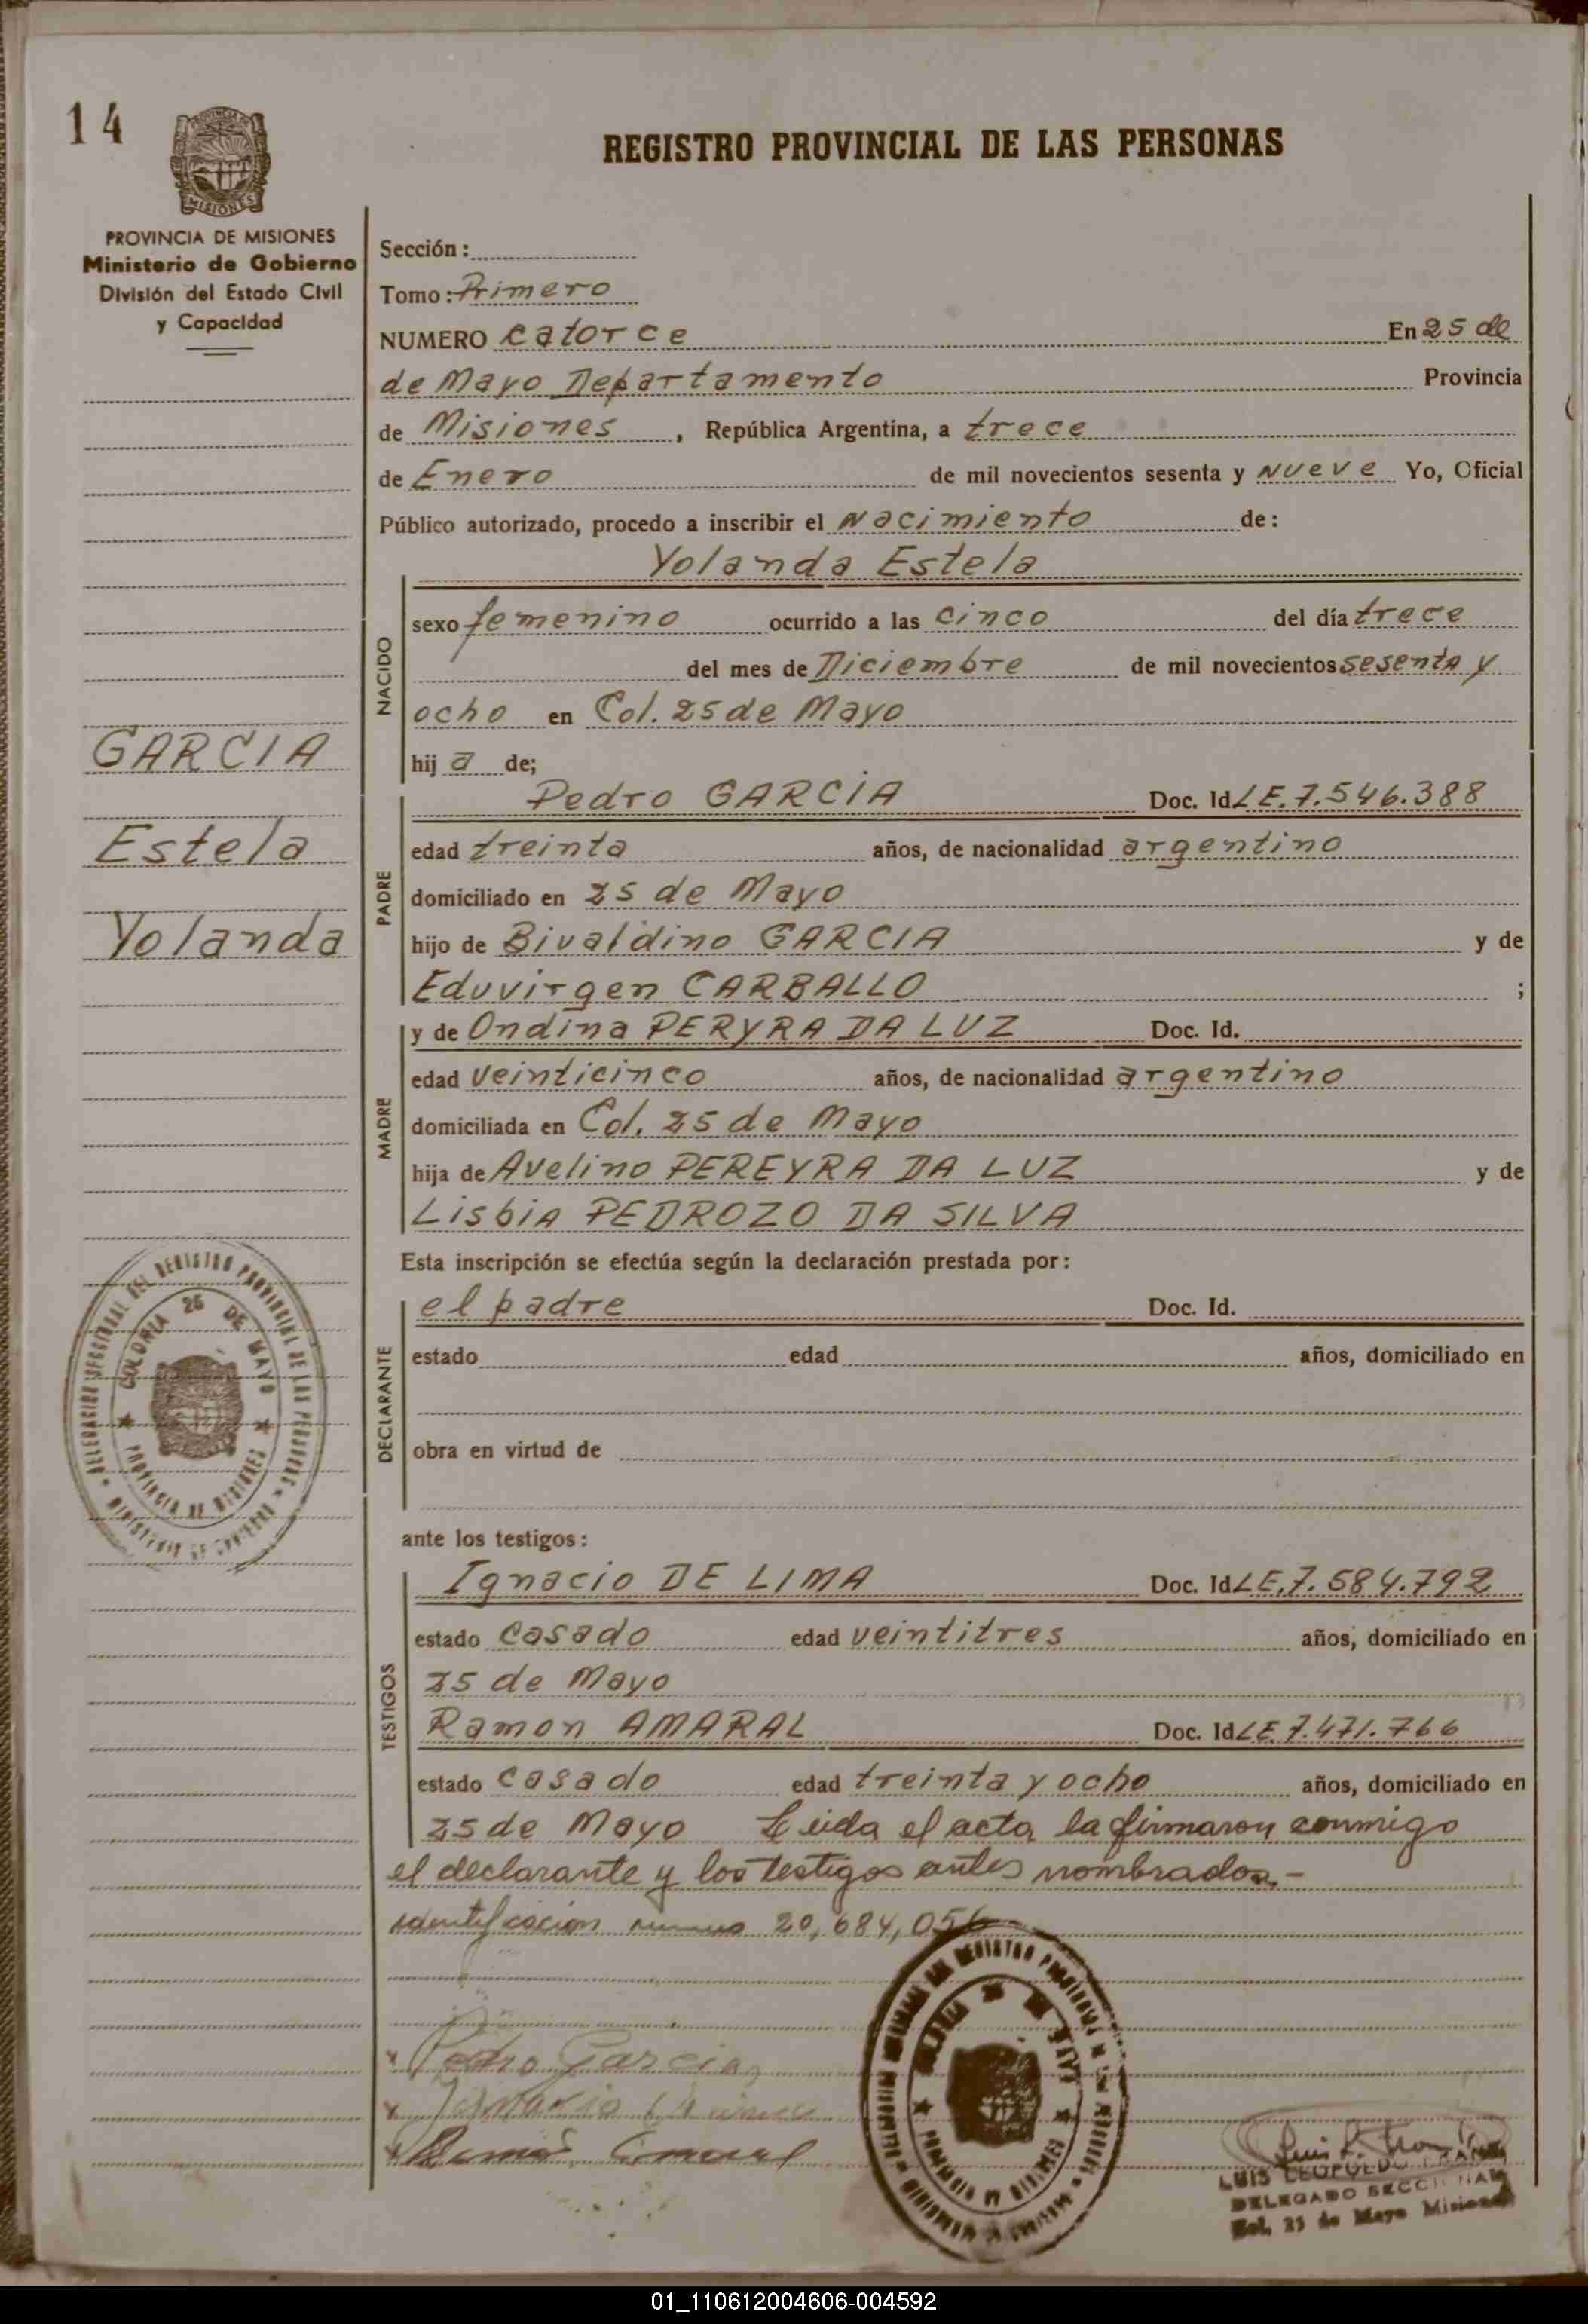 14
REGISTRO PROVINCIAL DE LAS PERSONAS
PROVINCIA DE MISIONES
Ministerio de Gobierno
División del Estado Civil
y Capacidad
Sección:
Tomo: Primero
NUMERO catorce En 25 de
de Mayo Departamento Provincia
de Misiones, República Argentina, a trece
de Enero de mil novecientos sesenta y nueve Yo, Oficial
Público autorizado, procedo a inscribir el nacimiento de:
Yolanda Estela
NACIDO
sexo femenino ocurrido a las cinco del día trece
del mes de Diciembre de mil novecientos sesenta y
ocho en Col. 25 de Mayo
hij a de;
GARCIA
Estela
Yolanda
PADRE
Pedro GARCIA Doc. Id LE. 7.546.388
edad treinta años, de nacionalidad argentino
domiciliado en 25 de Mayo
hijo de Bivaldino GARCIA y de
Eduvirgen CARBALLO ;
MADRE
y de Ondina PERYRA DA LUZ Doc. Id.
edad veinticinco años, de nacionalidad argentino
domiciliada en Col. 25 de Mayo
hija de Avelino PEREYRA DA LUZ y de
Lisbia PEDROZO DA SILVA
Esta inscripción se efectúa según la declaración prestada por:
DECLARANTE
el padre Doc. Id.
estado edad años, domiciliado en
obra en virtud de
ante los testigos:
TESTIGOS
Ignacio DE LIMA Doc. Id LE. 7.584.792
estado casado edad veintitres años, domiciliado en
25 de Mayo
Ramon AMARAL Doc. Id LE. 7.471.766
estado casado edad treinta y ocho años, domiciliado en
25 de Mayo Leida el acta la firmaron conmigo
el declarante y los testigos antes nombrados.-
identificacion numero 20,684,056
x Pedro Garcia
DELEGACION SECCIONAL DEL REGISTRO PROVINCIAL DE LAS PERSONAS
MINISTERIO DE GOBIERNO
COLONIA 25 DE MAYO
PROVINCIA DE MISIONES
LUIS LEOPOLDO
DELEGADO SECCIONAL
Col. 25 de Mayo Misiones
01_110612004606-004592